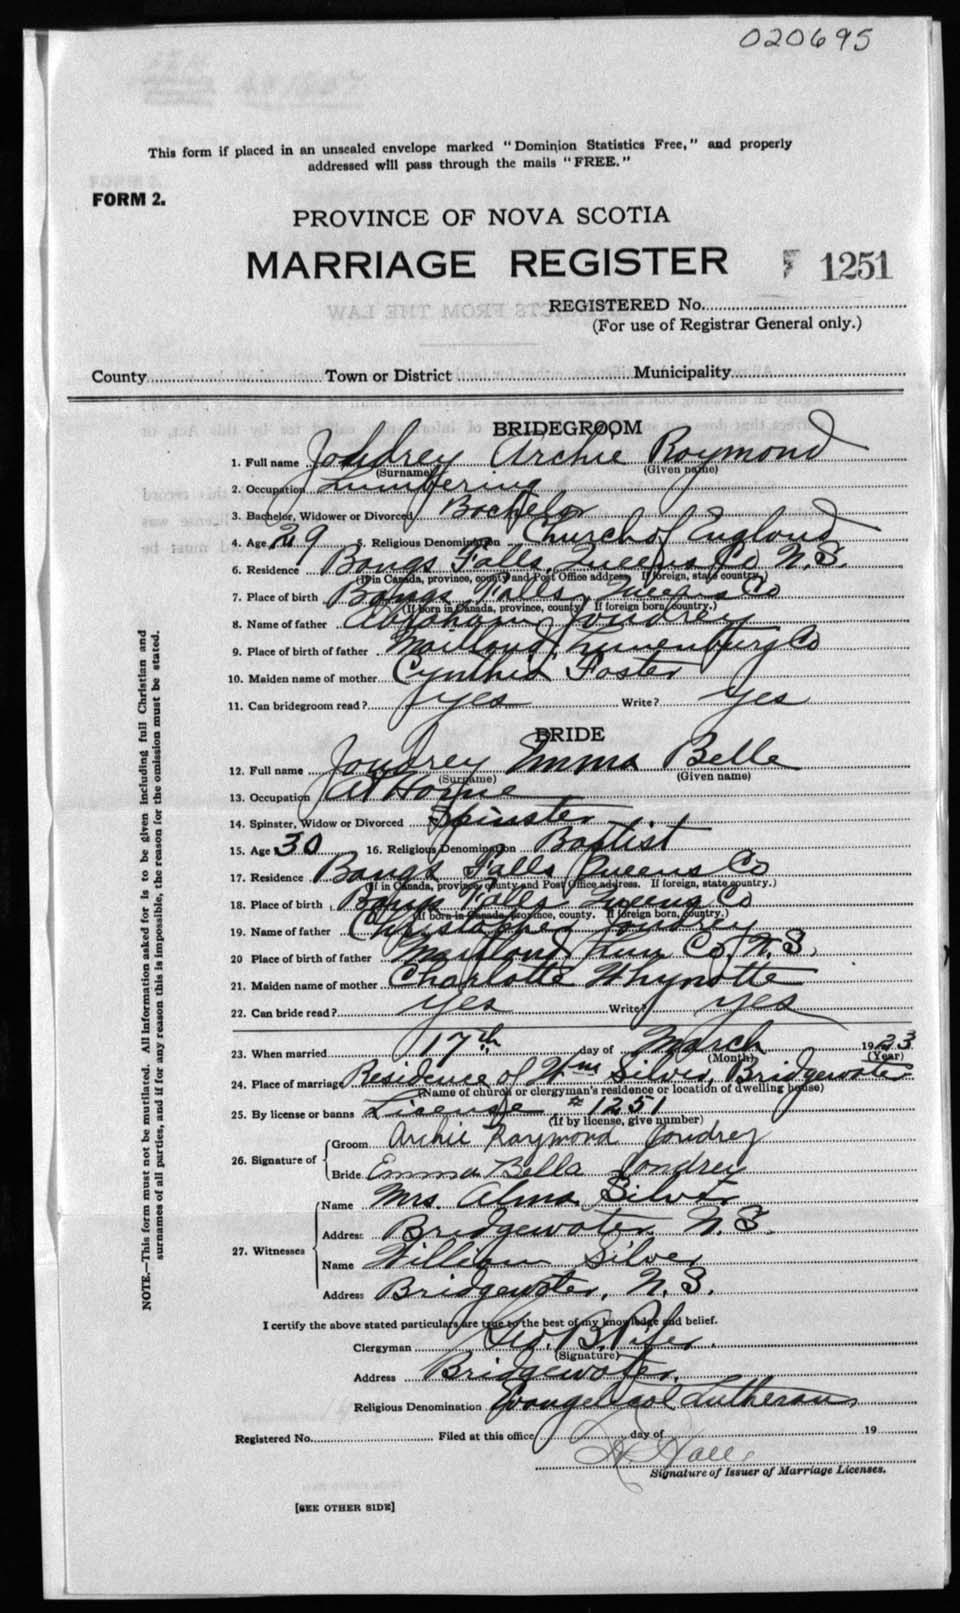 020695
This form if placed in an unsealed envelope marked "Dominion Statistics Free," and properly
addressed will pass through the mails "FREE."
FORM 2.
PROVINCE OF NOVA SCOTIA
MARRIAGE REGISTER 1251
REGISTERED No.
(For use of Registrar General only.)
County Town or District Municipality
BRIDEGROOM
1. Full name Joudrey Archie Raymond
(Surname) (Given name)
2. Occupation Lumbering
3. Bachelor, Widower or Divorced Bachelor
4. Age 29 5. Religious Denomination Church of England
6. Residence Bangs Falls, Queens Co N.S.
(If in Canada, province, county and Post Office address. If foreign, state country.)
7. Place of birth Bangs Falls, Queens Co
(If born in Canada, province, county. If foreign born, country.)
8. Name of father Abraham Joudrey
9. Place of birth of father Maitland, Lunenburg Co
10. Maiden name of mother Cynthia Foster
11. Can bridegroom read? yes Write? yes
BRIDE
12. Full name Joudrey Emma Belle
(Surname) (Given name)
13. Occupation At Home
14. Spinster, Widow or Divorced Spinster
15. Age 30 16. Religious Denomination Baptist
17. Residence Bangs Falls Queens Co
(If in Canada, province, county and Post Office address. If foreign, state country.)
18. Place of birth Bangs Falls Queens Co
(If born in Canada, province, county. If foreign born, country.)
19. Name of father Christopher Joudrey
20 Place of birth of father Maitland Lun Co, N.S.
21. Maiden name of mother Charlotte Whynotte
22. Can bride read? yes Write? yes
23. When married 17th day of March 1923
(Month) (Year)
24. Place of marriage Residence of Wm Silver, Bridgewater
(Name of church or clergyman's residence or location of dwelling house)
25. By license or banns License # 1251
(If by license, give number)
26. Signature of Groom Archie Raymond Joudrey
Bride Emma Bella Joudrey
27. Witnesses
Name Mrs. Alma Silver
Address Bridgewater N.S.
Name William Silver
Address Bridgewater, N.S.
I certify the above stated particulars are true to the best of my knowledge and belief.
Clergyman Geo. B.
(Signature)
Address Bridgewater.
Religious Denomination Evangelical Lutheran
Registered No. Filed at this office day of 19
Signature of Issuer of Marriage Licenses.
[SEE OTHER SIDE]
NOTE.—This form must not be mutilated. All information asked for is to be given including full Christian and
surnames of all parties, and if for any reason this is impossible, the reason for the omission must be stated.